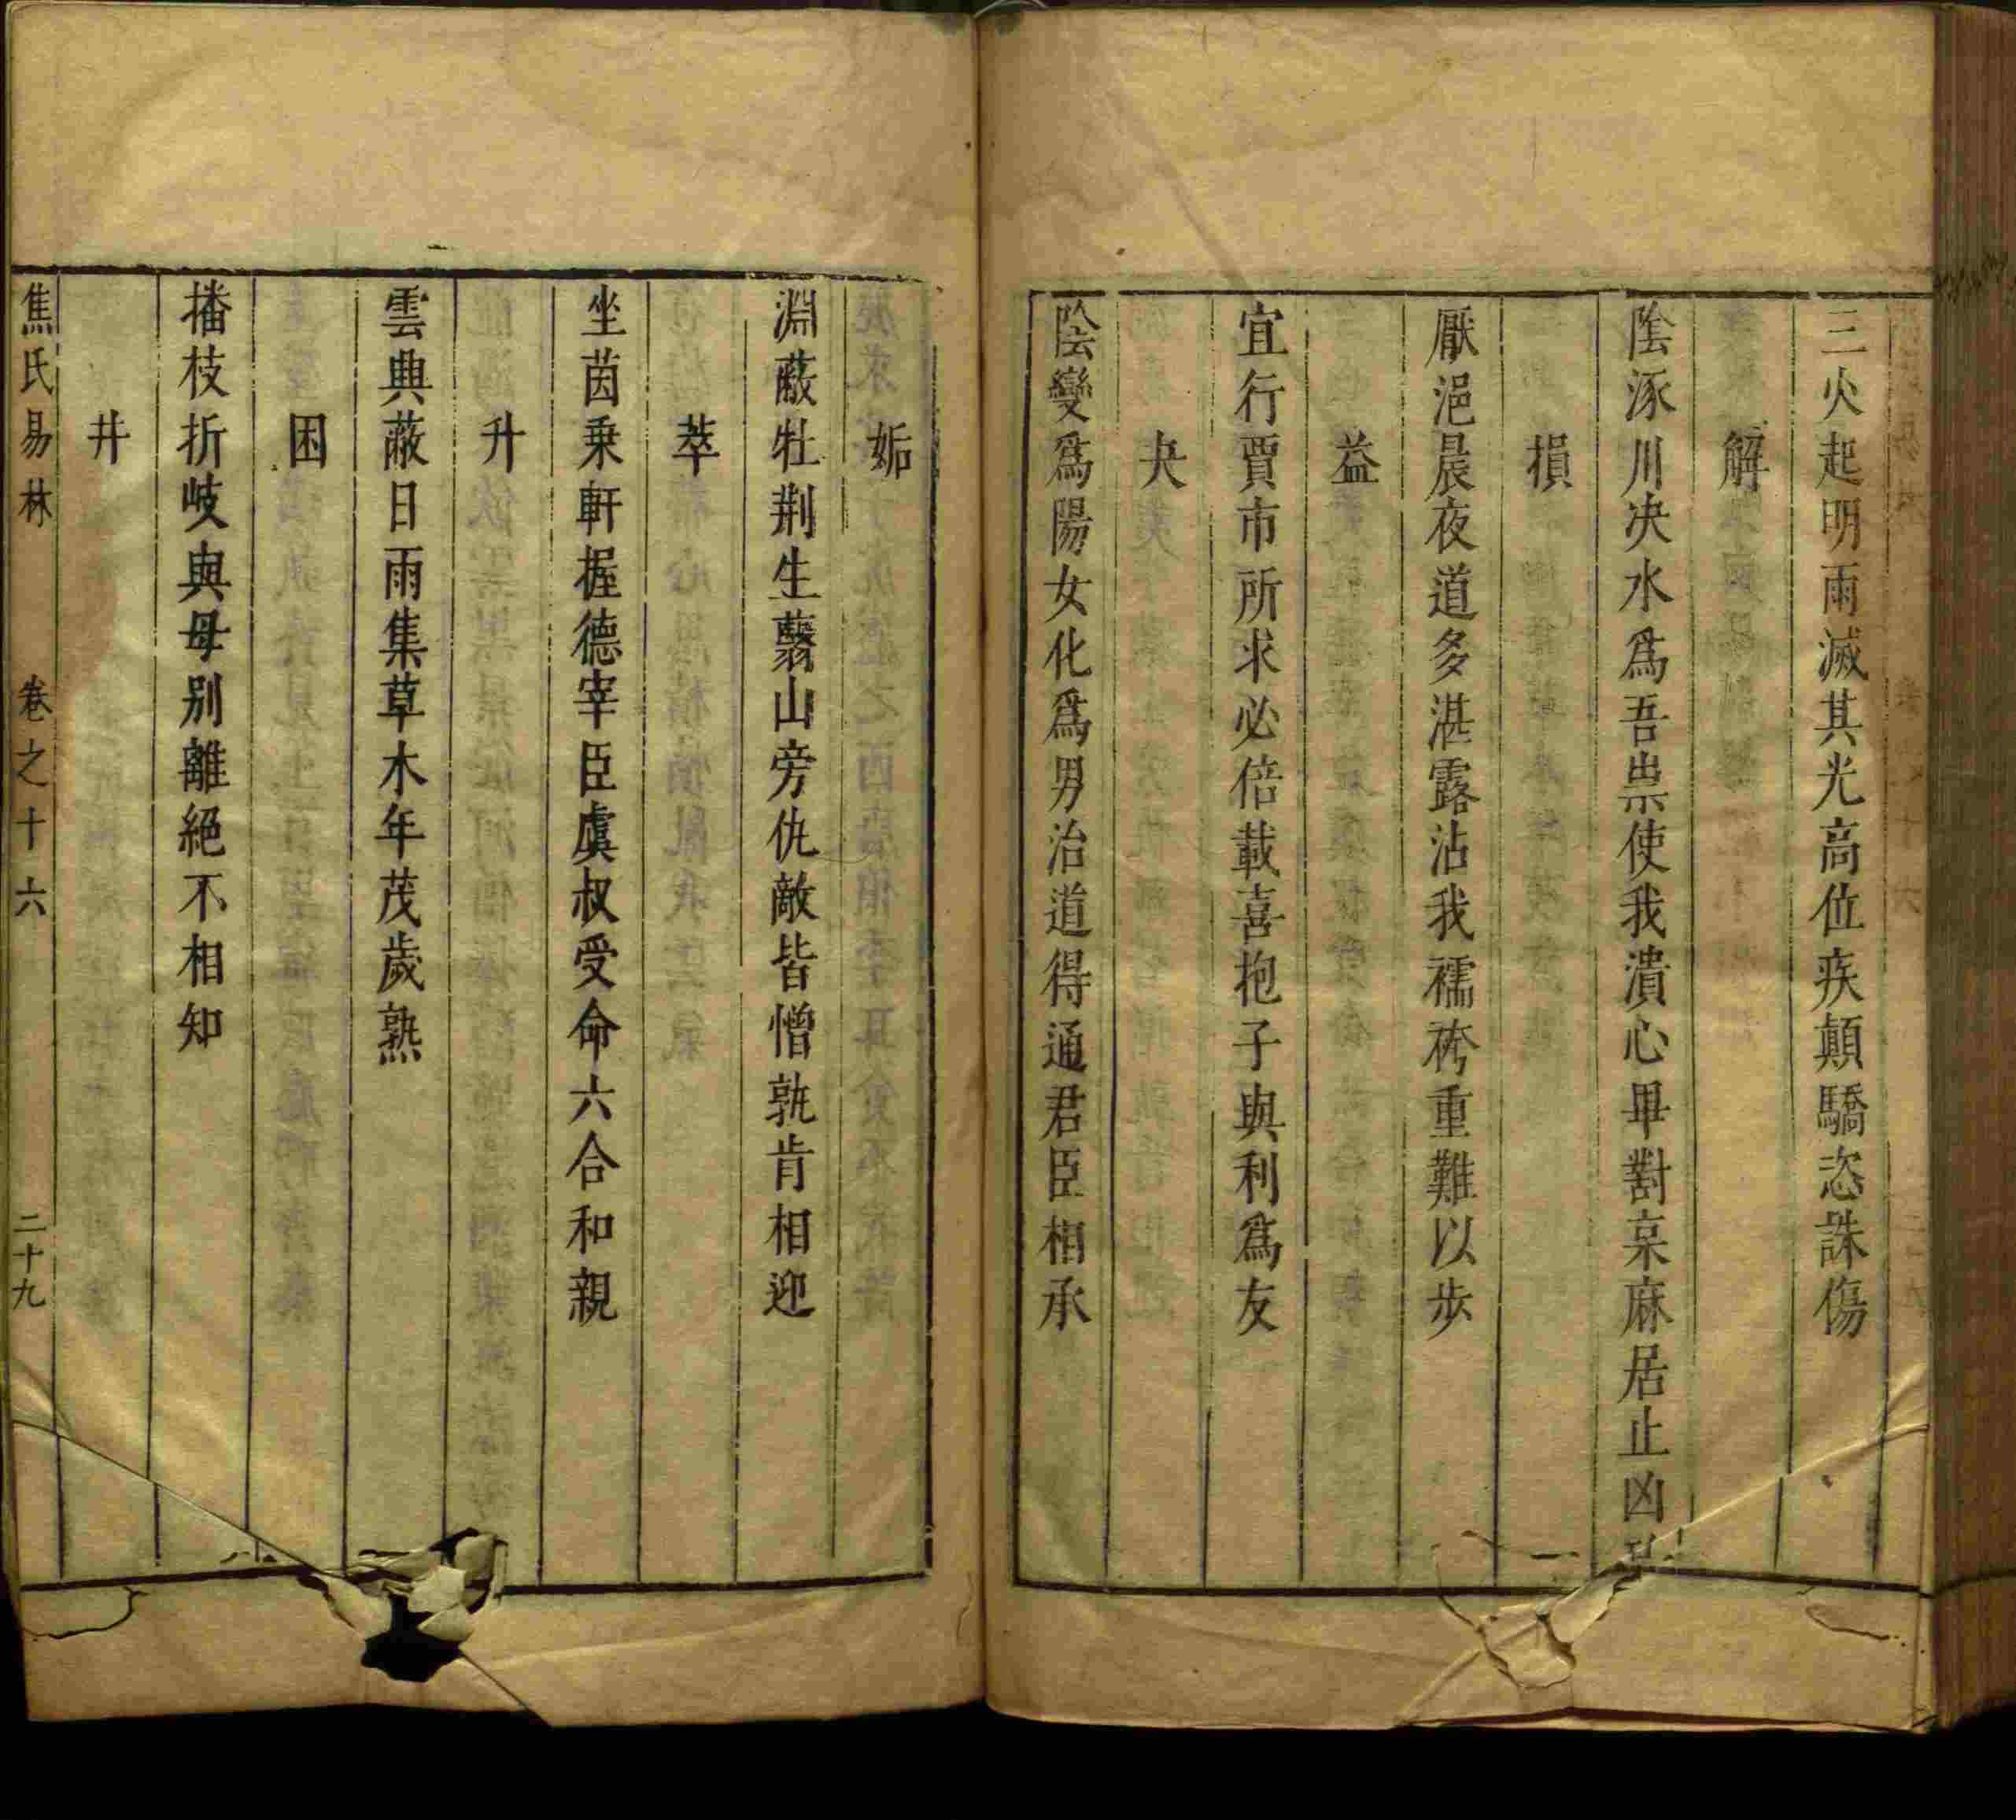 三火起明雨滅其光高位疾顛驕恣誅傷
解
陰涿川決水爲吾祟使我潰心毋對枲麻居止凶
損
厭浥晨夜道多湛露沾我襦袴重難以步
益
宜行賈市所求必倍載喜抱子與利爲友
夬
陰變爲陽女化爲男治道得通君臣相承
姤
淵蔽牡荆生蘙山旁仇敵皆憎孰肯相迎
萃
坐茵乗軒握德宰臣虞叔受命六合和親
升
雲興蔽日雨集草木年茂歲熟
困
播枝折岐與母别離絕不相知
井
焦氏易林　卷之十六　二十九